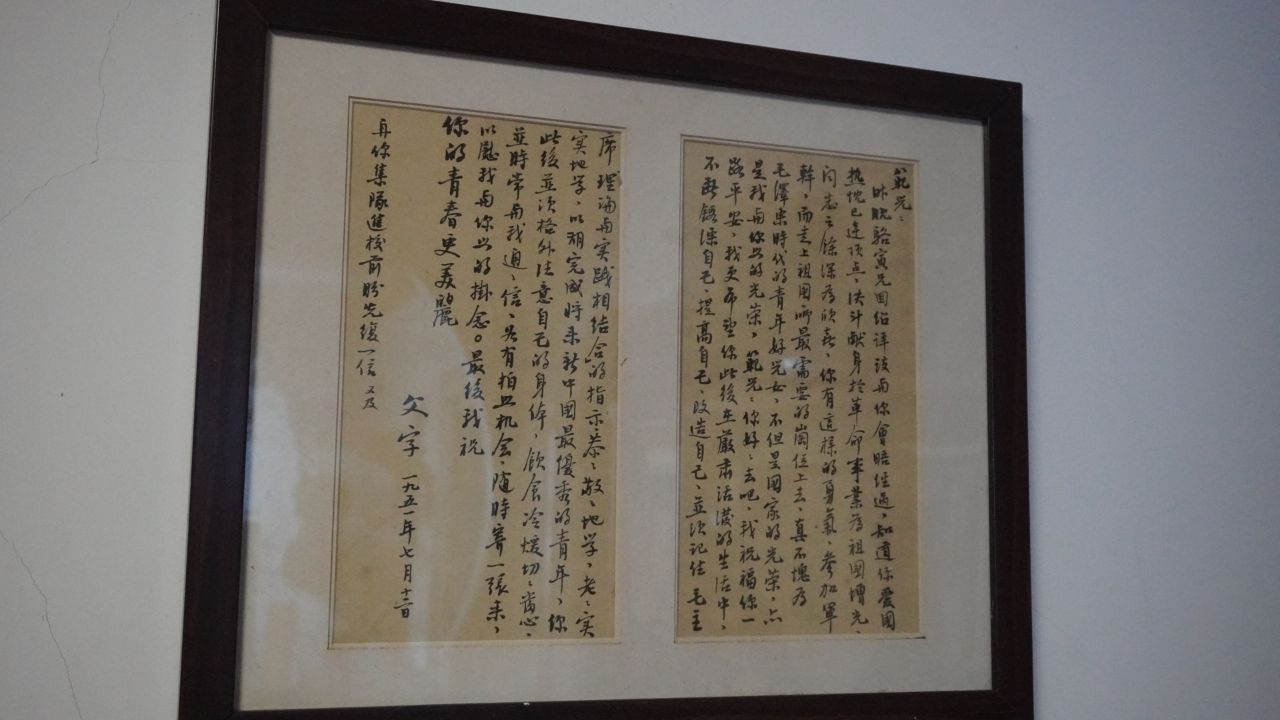 範允：
昨晚駱寅兄回紹详谈与你會晤住過，知道你爱国
热忱已達顶点，决计献身於革命事業為祖國增光、
闻悉之餘深為欣喜，你有這樣的勇氣，参加軍
幹，而走上祖國所最需要的崗位上去，真不愧為
毛澤東時代的青年好兒女，不但是國家的光荣，亦
是我与你母的光荣，範允：你好：去吧，我祝福你一
路平安，我更希望你此後在嚴肃活潑的生活中，
不断鍛鍊自己、提高自己、改造自己、並须记住 毛主
席理論与实践相结合的指示恭：敬：地学，老：实
实地学，以期完成将来新中國最優秀的青年，你
此後並须格外注意自己的身体，飲食冷煖切：當心，
並時常与我通：信，另有拍照机会，随時寄一張来，
以慰我与你母的掛念。最後我祝
你的青春更美麗
父字 一九五一年七月十二日
再你集隊進校前盼先復一信 又及